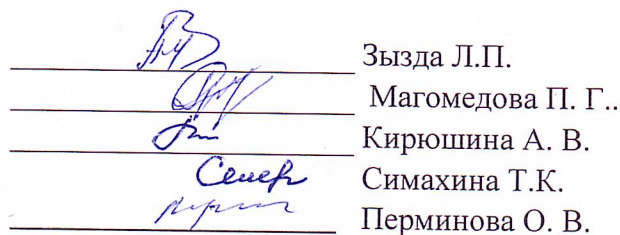 Зызда Л.П.
Магомедова П. Г..
Кирюшина А. В.
Симахина Т.К.
Перминова О. В.